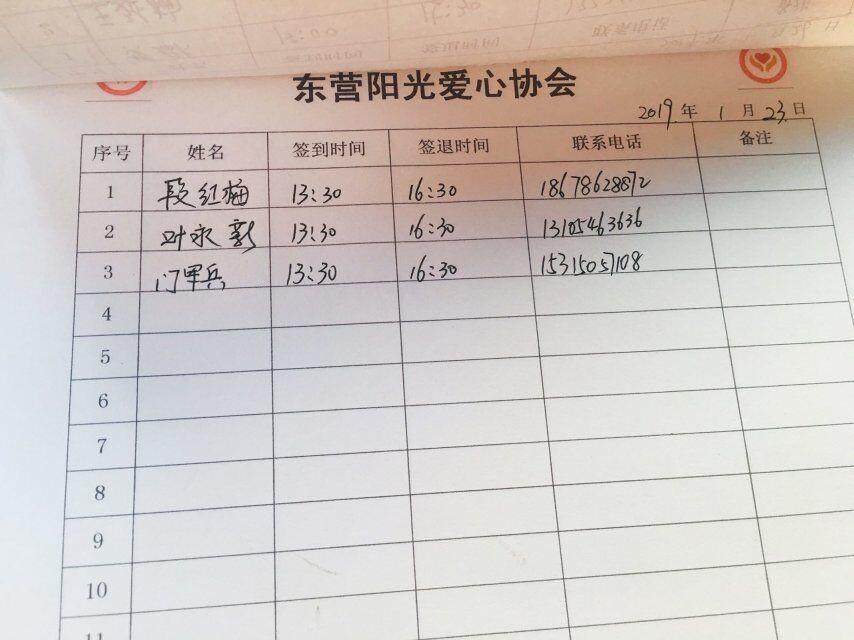 东营阳光爱心协会
2019 年 1 月 23 日
序号 姓名 签到时间 签退时间 联系电话 备注
1 段红梅 13:30 16:30 18678628872
2 叶永新 13:30 16:30 13105463636
3 门甲兵 13:30 16:30 15315057108
4
5
6
7
8
9
10
11